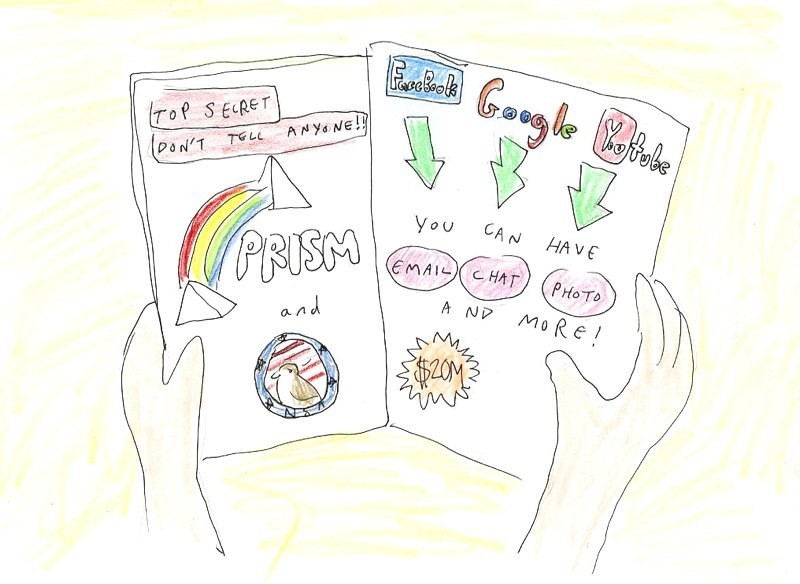 TOP SECRET
DON'T TELL ANYONE!!
PRISM
and
FaceBook
Google
Youtube
YOU CAN HAVE
EMAIL CHAT PHOTO
AND MORE!
$20M